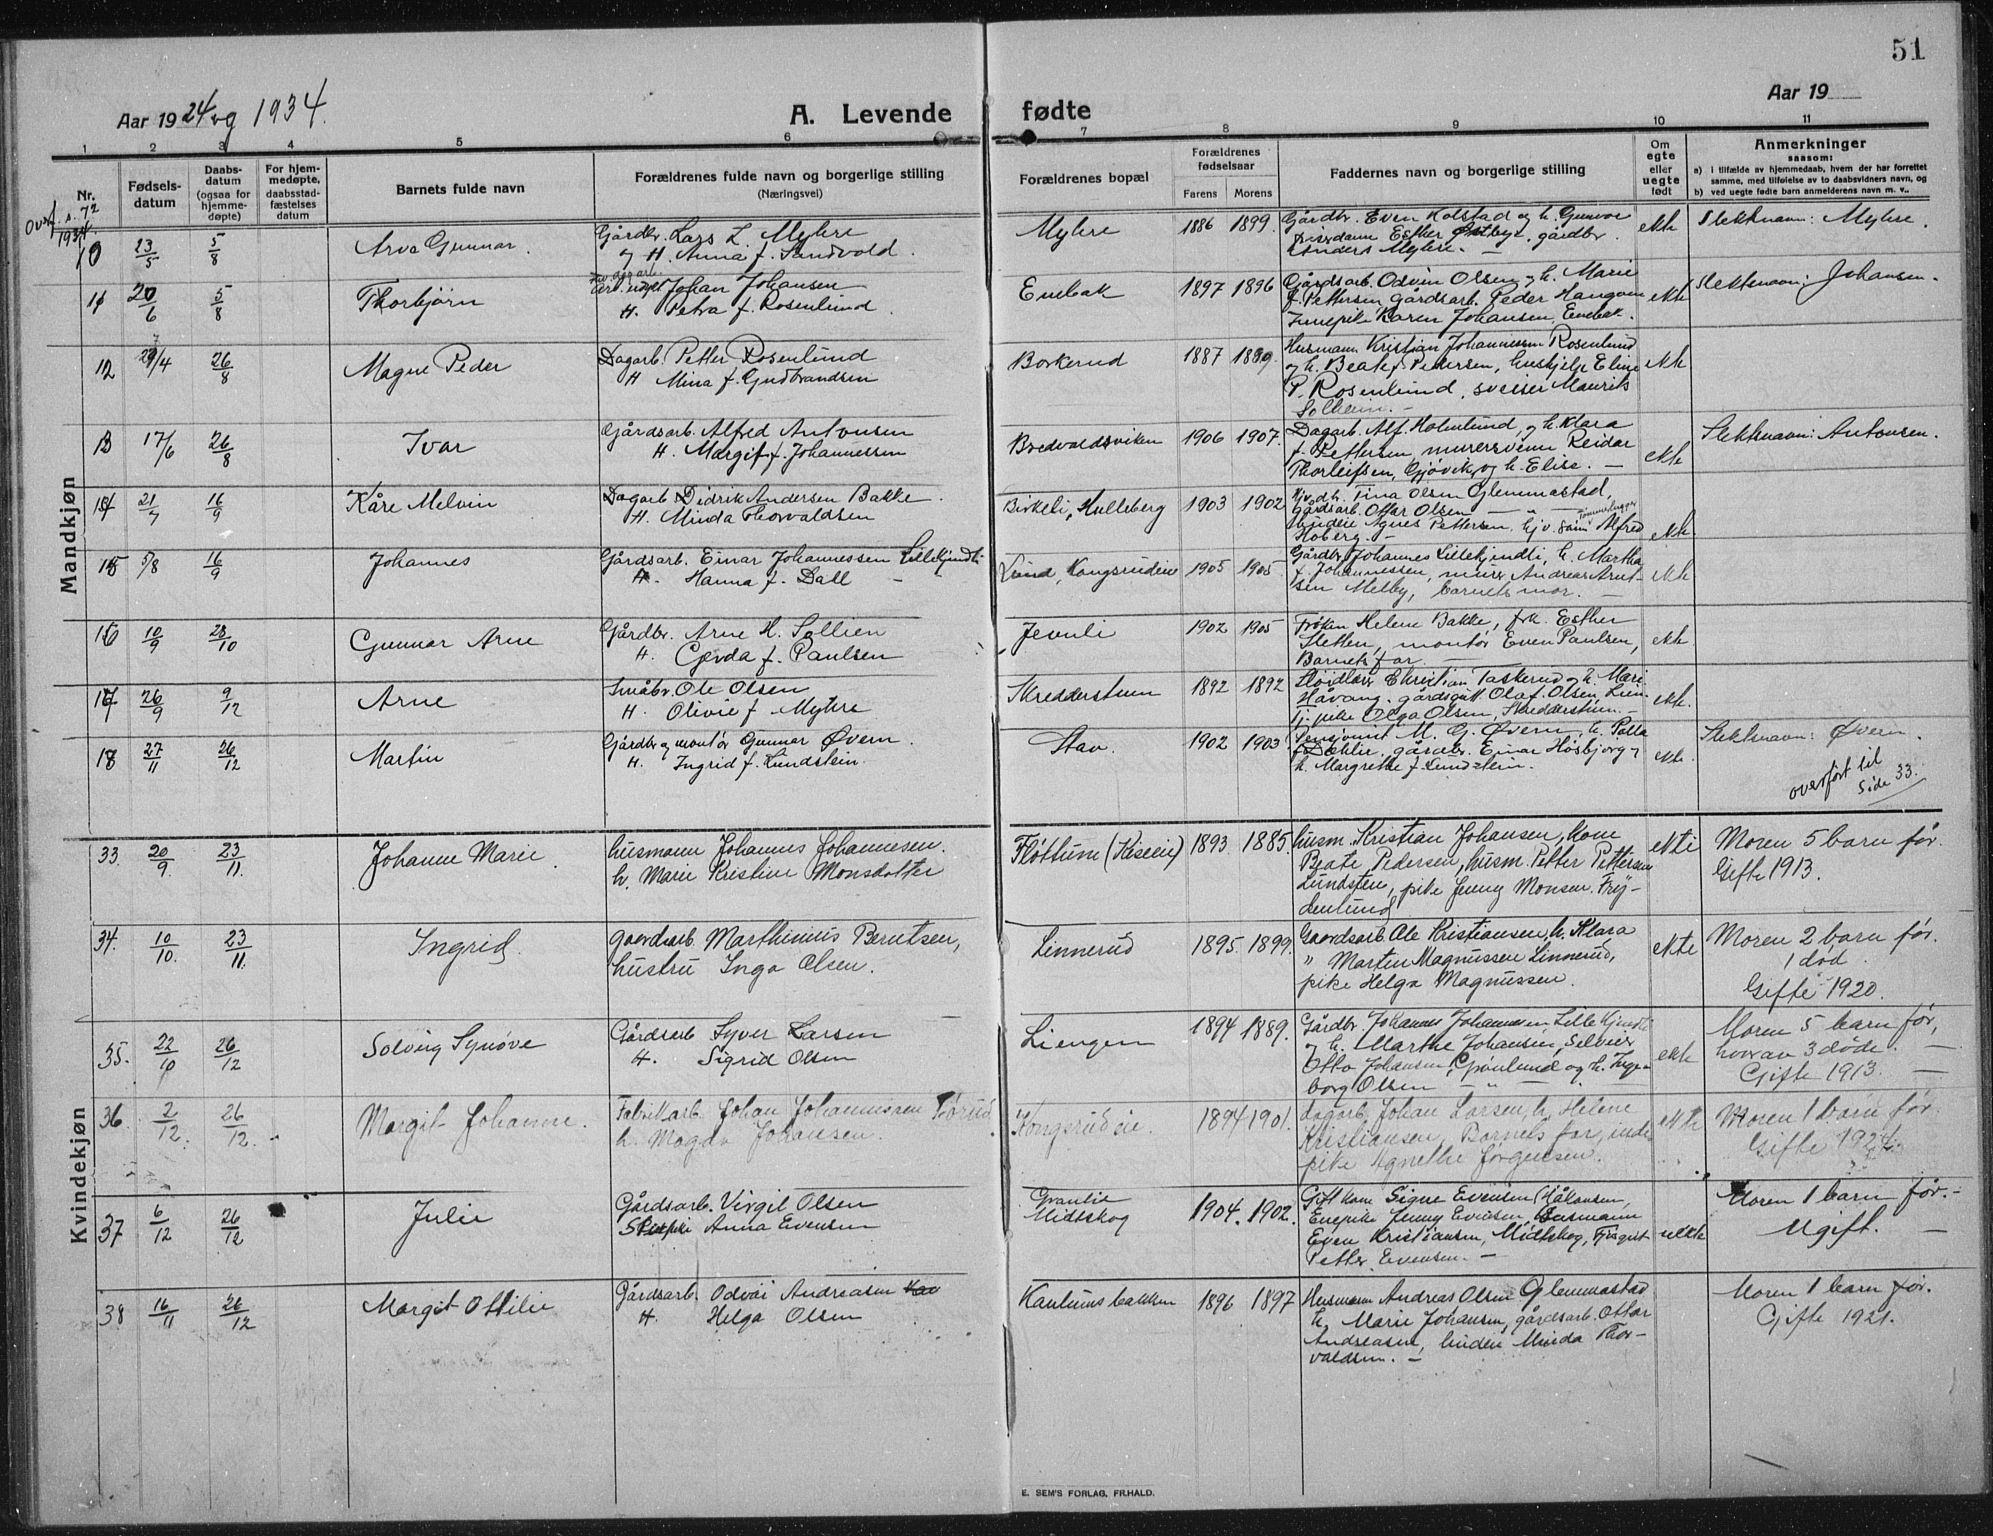 51
Aar 1924 og 1934.
A. Levende fødte
Aar 19
1 2 3 4 5 6 7 8 9 10 11
Nr.
Fødsels-
datum
Daabs-
datum
(ogsaa for
hjemme-
døpte)
For hjem-
medøpte,
daabsstad-
fæstelses
datum
Barnets fulde navn
Forældrenes fulde navn og borgerlige stilling
(Næringsvei)
Forældrenes bopæl
Forældrenes
fødselsaar
Farens Morens
Faddernes navn og borgerlige stilling
Om
egte
eller
uegte
født
Anmerkninger
saasom:
a) i tilfælde av hjemmedaab, hvem der har forrettet
samme, med tilføielse av to daabsvidners navn, og
b) ved uegte fødte barn anmelderens navn m. v..
Overf. s. 72
1934.
Mandkjøn
10 23/5 5/8 Arva Gunnar. Gårdbr. Lars L. Myhre
og H. Anna f. Sandvold.
Myhre 1886 1899 Gårdbr. Even Kolstad og h. Gunvor
Esther Østbye, gårdbr.
Anders Myhre. — ekte Slektnavn: Myhre.
11 20/6 5/8 Thorbjørn Johan Johansen
H. Petra f. Rosenlund.
Enebak 1897 1896 Gårdsarb. Odvin Olsen og h. Marie
f. Pettersen, gårdsarb. Peder Haugom
Innepike Karen Johansen, Enebak. ekte Slektnavn: Johansen.
12 29/4 26/8 Magne Peder Dagarb. Petter Rosenlund
H. Mina f. Gudbrandsen
Borkerud 1887 1889. Husmann Kristian Johannessen Rosenlund
og h. Beate f. Pedersen, hushjelp Eline
P. Rosenlund, sveiser Maurits
Solheim. — ekte
13 17/6 26/8 Ivar Gårdsarb. Alfred Antonsen
H. Margit f. Johannessen
Bredvoldsviken 1906 1907. Dagarb. Alf. Holmlund, og h. Klara
f. Pettersen, murersvenn Reidar
Thorleifsen, Gjøvik, og h. Elise. — ekte Slektnavn: Antonsen.
14 21/7 16/9 Kåre Melvin Dagarb. Didrik Andersen Bakke.
H. Minda Thorvaldsen
Birkeli, Hulleberg 1903 1902 Gjv.dh. Tina Olsen Glemmastad,
Gårdsarb. Ottar Olsen — " —
budeie Agnes Pettersen, Gjv. samt tømmerhugger Alfred
Hoberg. — ekte
15 5/8 16/9 Johannes Gårdsarb. Einar Johannessen Lillekjindli
H. Hanna f. Dall — " —
Lund, Kongsrudeie 1905 1905 Gårdbr. Johannes Lillekjindli, h. Martha
f. Johannessen, murer Andreas Arnt-
sen Melby, barnets mor. — ekte
16 10/9 28/10 Gunnar Arne Gårdbr. Arne H. Sollien
H. Gerda f. Paulsen
Jevnli 1902 1905 Frøken Helene Bakke, frk. Esther
Sletten, montør Even Paulsen,
Barnets far. — ekte
17 26/9 9/12 Arne Småbr. Ole Olsen
H. Olivie f. Myhre
Skredderstuen 1892 1892 Christian Taskerud og h. Mari
Håvang, gårdsgutt Olaf Olsen, Lien,
tj. pike Olga Olsen, Skredderstuen. — ekte.
18 27/11 26/12 Martin Gårdbr. og montør Gunnar Øvern.
H. Ingrid f. Lundstein.
Stav 1902 1903 M. G. Øvern, h. Palla
f. Dæhlie, gårdbr. Einar Hösbjorg og
h. Margrethe f. Lundstein. ekte. Slektnavn: Øvern.
overført til
side 33.
Kvindekjøn
33. 20/9. 23/11. Johanne Marie. husmann Johannes Johannesen.
h. Marie Kristine Monsdatter
Fløttum (Kiseeie) 1893 1885. husm. Kristian Johansen, kone
Beate Pedersen, husm. Petter Pettersen
Lundsten, pike Jenny Monsen. Fry-
denlund ekte Moren 5 barn før.
Gifte 1913.
34. 10/10. 23/11. Ingrid. gaardsarb. Marthinius Berntsen,
hustru Inga Olsen.
Linnerud 1895. 1899. Gaardsarb. Ole Kristiansen, h. Klara
" Marten Magnussen Linnerud,
pike Helga Magnussen. ekte Moren 2 barn før.
1 død.
Gifte 1920.
35. 22/10 26/12 Solveig Synøve Gårdsarb. Syver Larsen
H. Sigrid Olsen
Liengen 1894 1889. Gårdbr. Johannes Johannesen Lille Kjindli
og h. Marthe Johansen, Selveier
Otto Johansen, Grønlund og h. Inge-
borg Olsen — " — ekte Moren 5 barn før,
hvorav 3 døde. —
Gifte 1913. —
36. 2/12. 26/12. Margit Johanne. Fabrikkarb. Johan Johannesen
h. Magda Johansen.
Kongsrudeie. 1894 1901. dagarb. Johan Larsen, h. Helene
Kristiansen, Barnets far, inde
pike Agnethe Jørgensen. ekte Moren 1 barn før.
Gifte 1924.
37 6/12 26/12 Julie Gårdsarb. Virgil Olsen
Anna Evensen
Granlie
Midtskog 1904. 1902. Gift kone Signe Evensen (Håkonsen,
Enepike Jenny Evensen, husmann
Even Kristiansen, Midtskog,
Petter Evensen. — uekte Moren 1 barn før. —
Ugift. —
38 16/11 26/12 Margit Ottilie Gårdsarb. Odvar Andreasen
H. Helga Olsen
Kaulumsbakken 1896 1897 Husmann Andreas Olsen Glemmastad
h. Marie Johansen, gårdsarb. Ottar
Andreasen, budeie Minda Thor-
valdsen. — Moren 1 barn før.
Gifte 1921.
E. SEM'S FORLAG, FR.HALD.